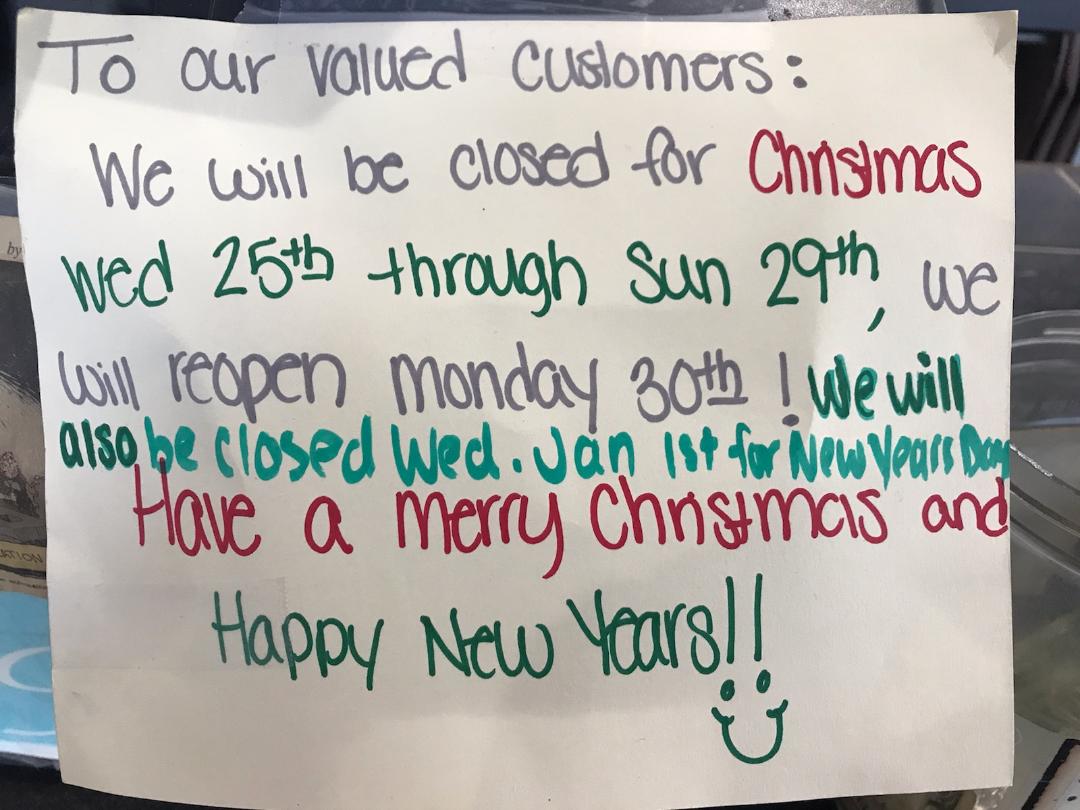 To our valued customers:
We will be closed for Christmas
Wed 25th through Sun 29th, we
will reopen monday 30th! We will
also be closed Wed. Jan 1st for New Years Day
Have a merry Christmas and
Happy New Years!!
by
ATION